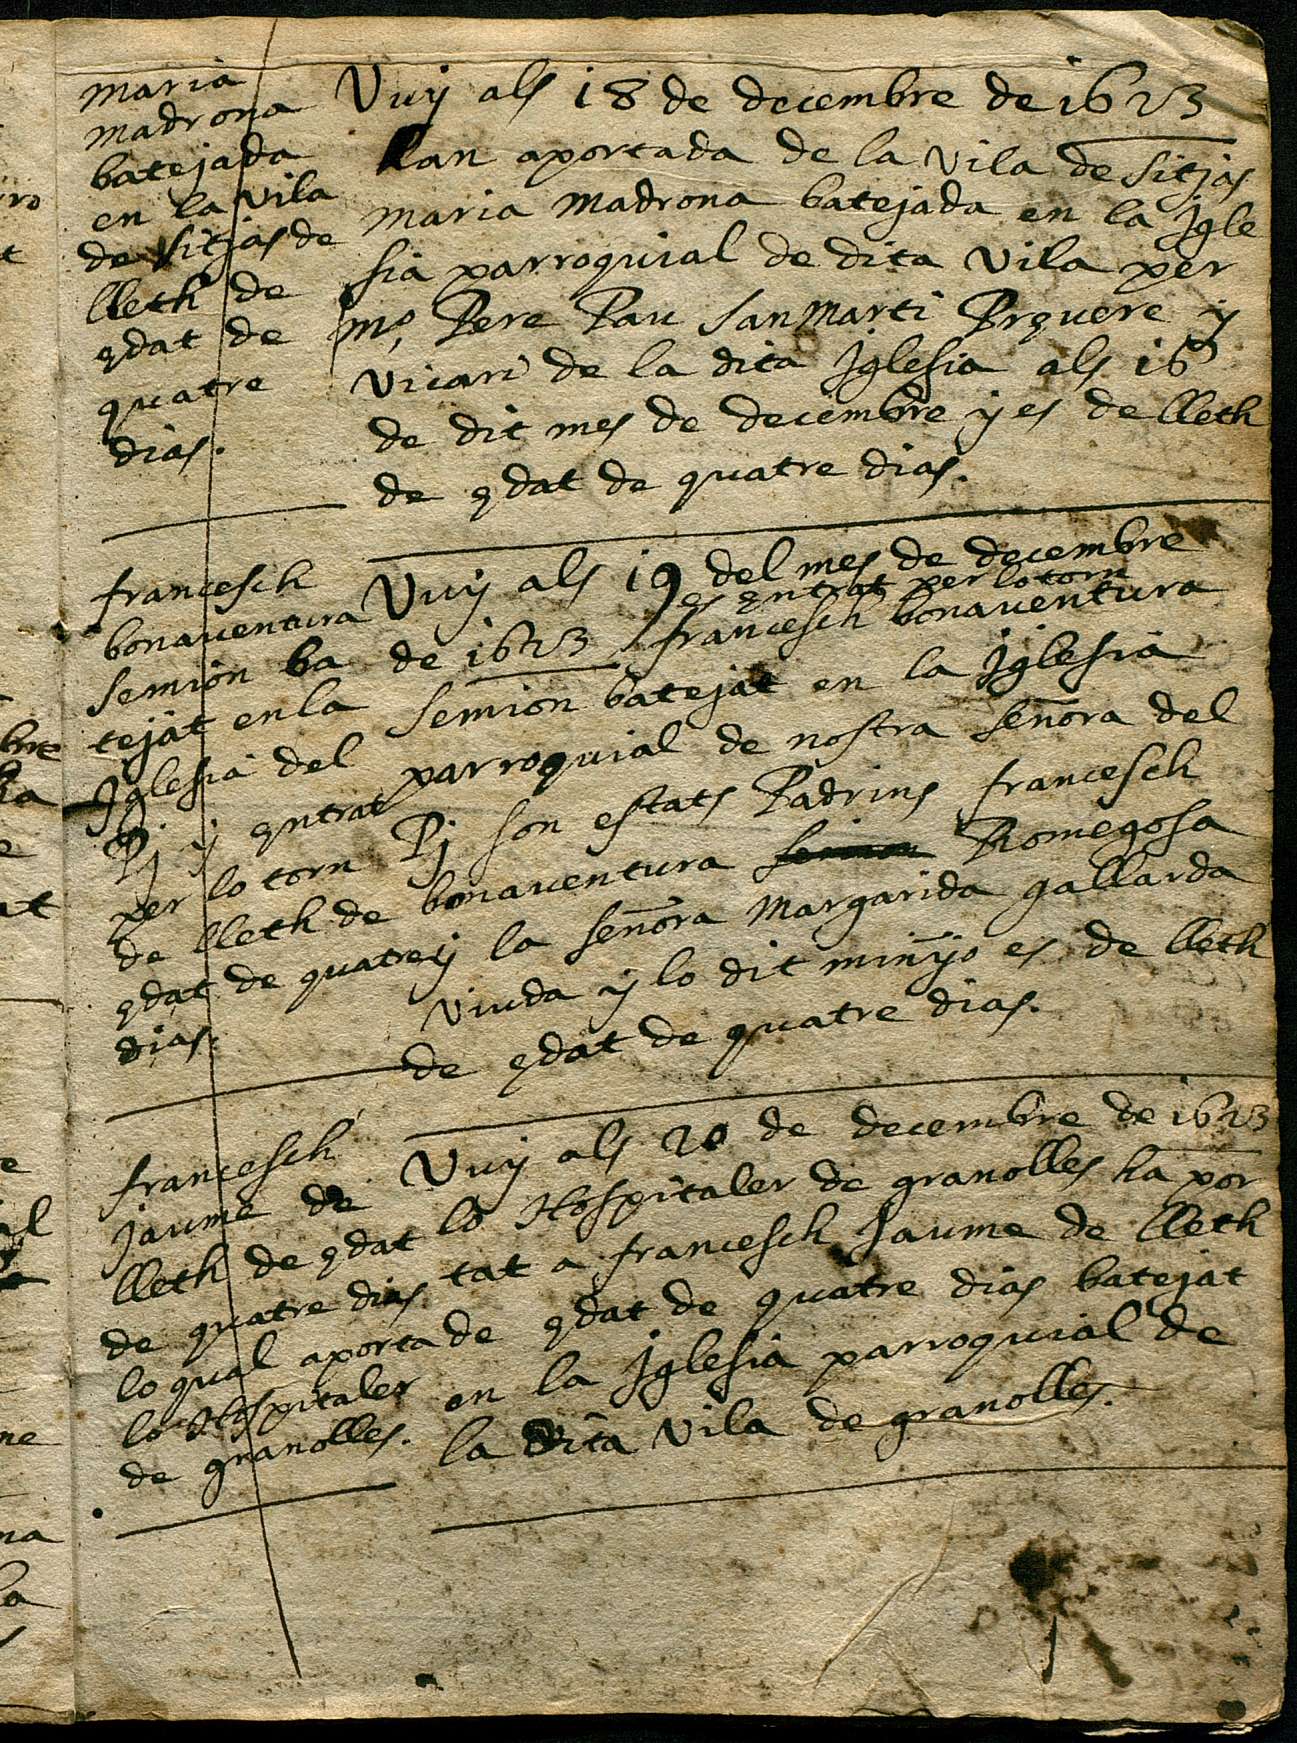 maria
madrona
batejada
en la vila
de sitjas de
lleth de
edat de
quatre
dias.
Vuy als 18 de decembre de 1623
han aportada de la vila de sitjas
maria madrona batejada en la Igle
sia parroquial de dita vila per
mº Pere Pau sanmarti Prevere y
vicari de la dita Iglesia als 16
de dit mes de decembre y es de lleth
de edat de quatre dias.
francesch
bonaventura
semion ba
tejat en la
Iglesia del
Pj y entrat
per lo torn
de lleth de
edat de quatre
dias.
Vuy als 19 del mes de decembre
es entrat per lo torn
de 1623 francesch bonaventura
semion batejat en la Iglesia
parroquial de nostra señora del
Pj son estats Padrins francesch
bonaventura Romegosa
y la señora Margarida gallarda
viuda y lo dit minyo es de lleth
de edat de quatre dias.
francesch
jaume de
lleth de edat
de quatre dias
lo qual aporta
lo Hospitaler
de granolles.
Vuy als 20 de decembre de 1623
lo Hospitaler de granolles ha por
tat a francesch Jaume de lleth
de edat de quatre dias batejat
en la Iglesia parroquial de
la dita vila de granolles.